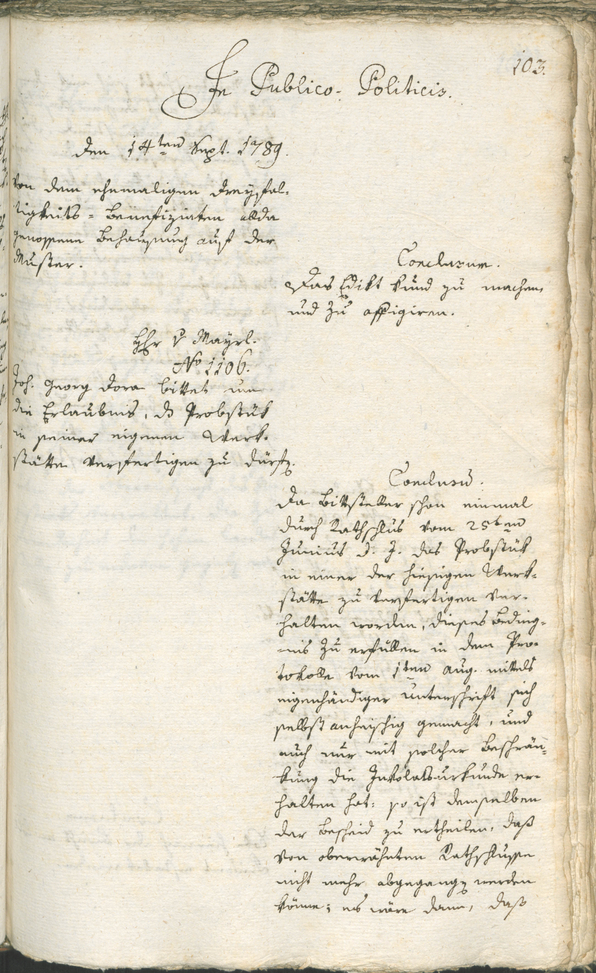 103.
In Publico-Politicis.
Den 14ten Sept. 1789.
von dem ehemaligen Dreyfal-
tigkeits-Benefiziaten allda
genossene Behausung auf der
Muster.
Conclusum.
Das Edikt kund zu machen,
und zu affigiren.
Hhr v Mayrl.
No 1106.
Joh. Georg Dora bittet um
die Erlaubnis, d Probstük
in seiner eigenen Werk-
stätte verfertigen zu dürfen.
Conclusum.
Da Bittsteller schon einmal
durch Rathschlus vom 25ten
Junius d. J. das Probstük
in einer der hiesigen Werk-
stätte zu verfertigen ver-
halten worden, dieses Beding-
nis zu erfüllen in dem Pro-
tokolle vom 1ten Aug. mittels
eigenhändiger Unterschrift sich
selbst anheischig gemacht, und
auch nur mit solcher Beschrän-
kung die Inkolatsurkunde er-
halten hat: so ist demselben
der Bescheid zu ertheilen, daß
von oberwähnten Rathschlusse
nicht mehr abgegangen werden
könne; es wäre dann, daß